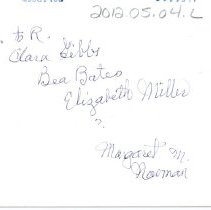 2012.05.04.L
to R.
Clara Gibbs
Bea Bates
Elizabeth Miller
?
Margaret M.
Norman